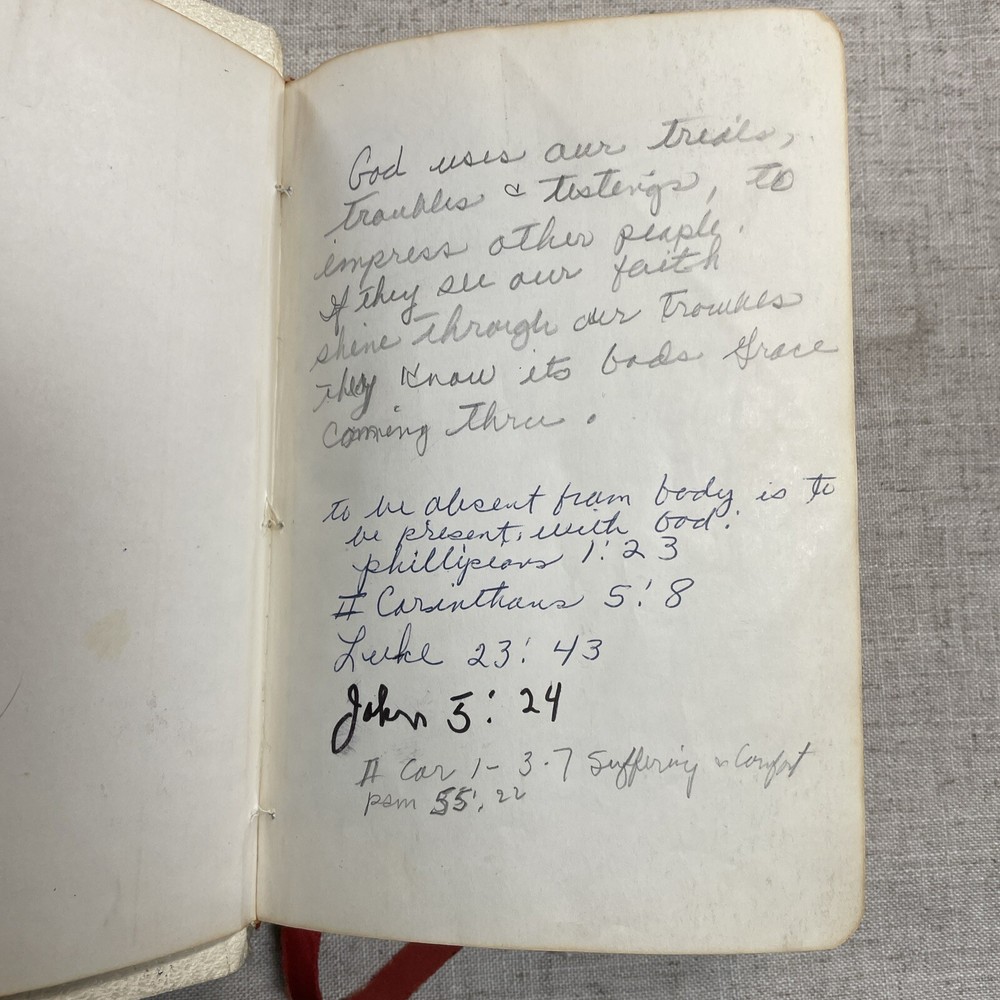 God uses our trials,
troubles & testings, to
impress other people.
If they see our faith
shine through our troubles
they know its Gods Grace
coming thru.
to be absent from body is to
be present, with God.
phillipians 1:23
II Corinthans 5:8
Luke 23:43
John 5:24
II Cor 1-3-7 Suffering n Comfort
psm 55:22